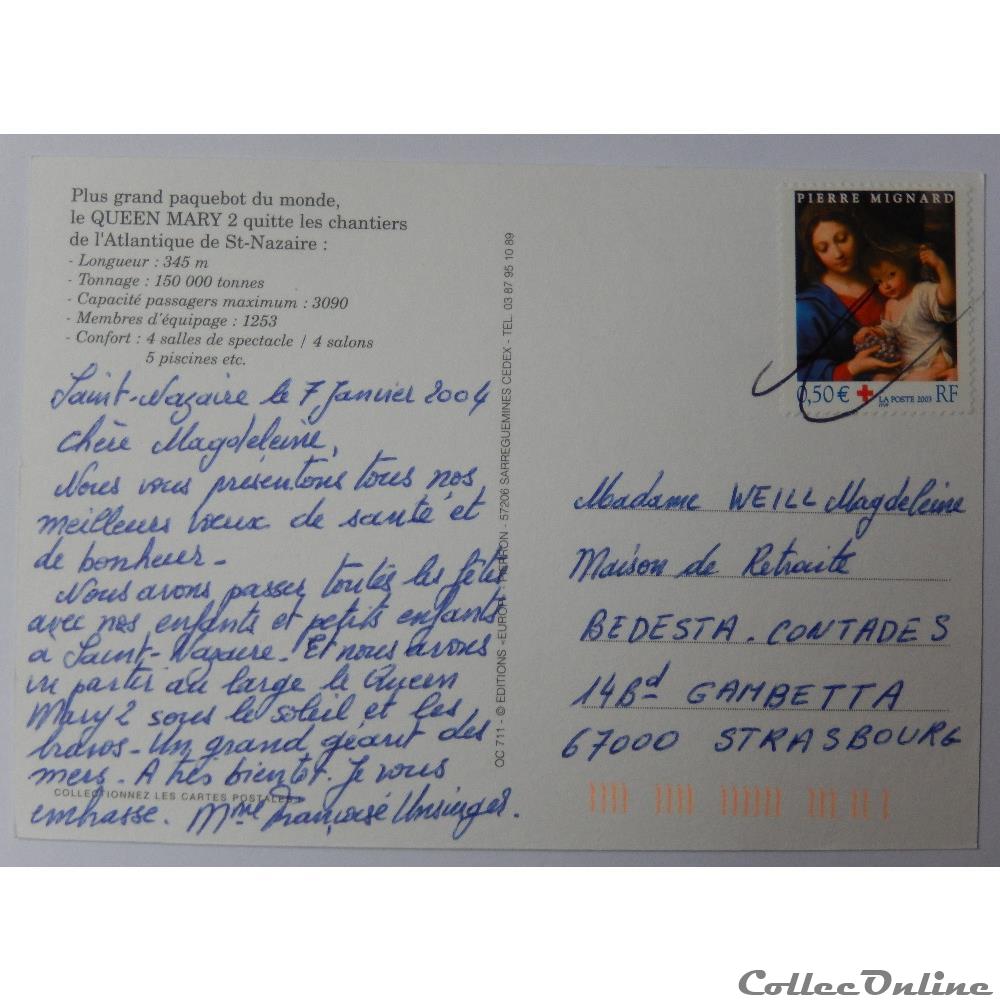 Plus grand paquebot du monde,
le QUEEN MARY 2 quitte les chantiers
de l'Atlantique de St-Nazaire :
- Longueur : 345 m
- Tonnage : 150 000 tonnes
- Capacité passagers maximum : 3090
- Membres d'équipage : 1253
- Confort : 4 salles de spectacle / 4 salons
5 piscines etc.
Saint-Nazaire le 7 Janvier 2004
Chère Magdeleine,
Nous vous présentons tous nos
meilleurs vœux de santé et
de bonheur -
Nous avons passer toutes les fêtes
avec nos enfants et petits enfants
a Saint-Nazaire - Et nous avons
vu partir au large le Queen
Mary 2 sous le soleil et les
bravos - Un grand géant des
mers - A très bientot. Je vous
COLLECTIONNEZ LES CARTES POSTALES
embrasse. Mme Françoise
OC 711 - © EDITIONS «EUROP» PIERRON - 57206 SARREGUEMINES CEDEX - TEL. 03 87 95 10 89
PIERRE MIGNARD
0,50 € LA POSTE 2003 RF
Madame WEILL Magdeleine
Maison de Retraite
BEDESTA. CONTADES
14 Bd GAMBETTA
67000 STRASBOURG
CollecOnline